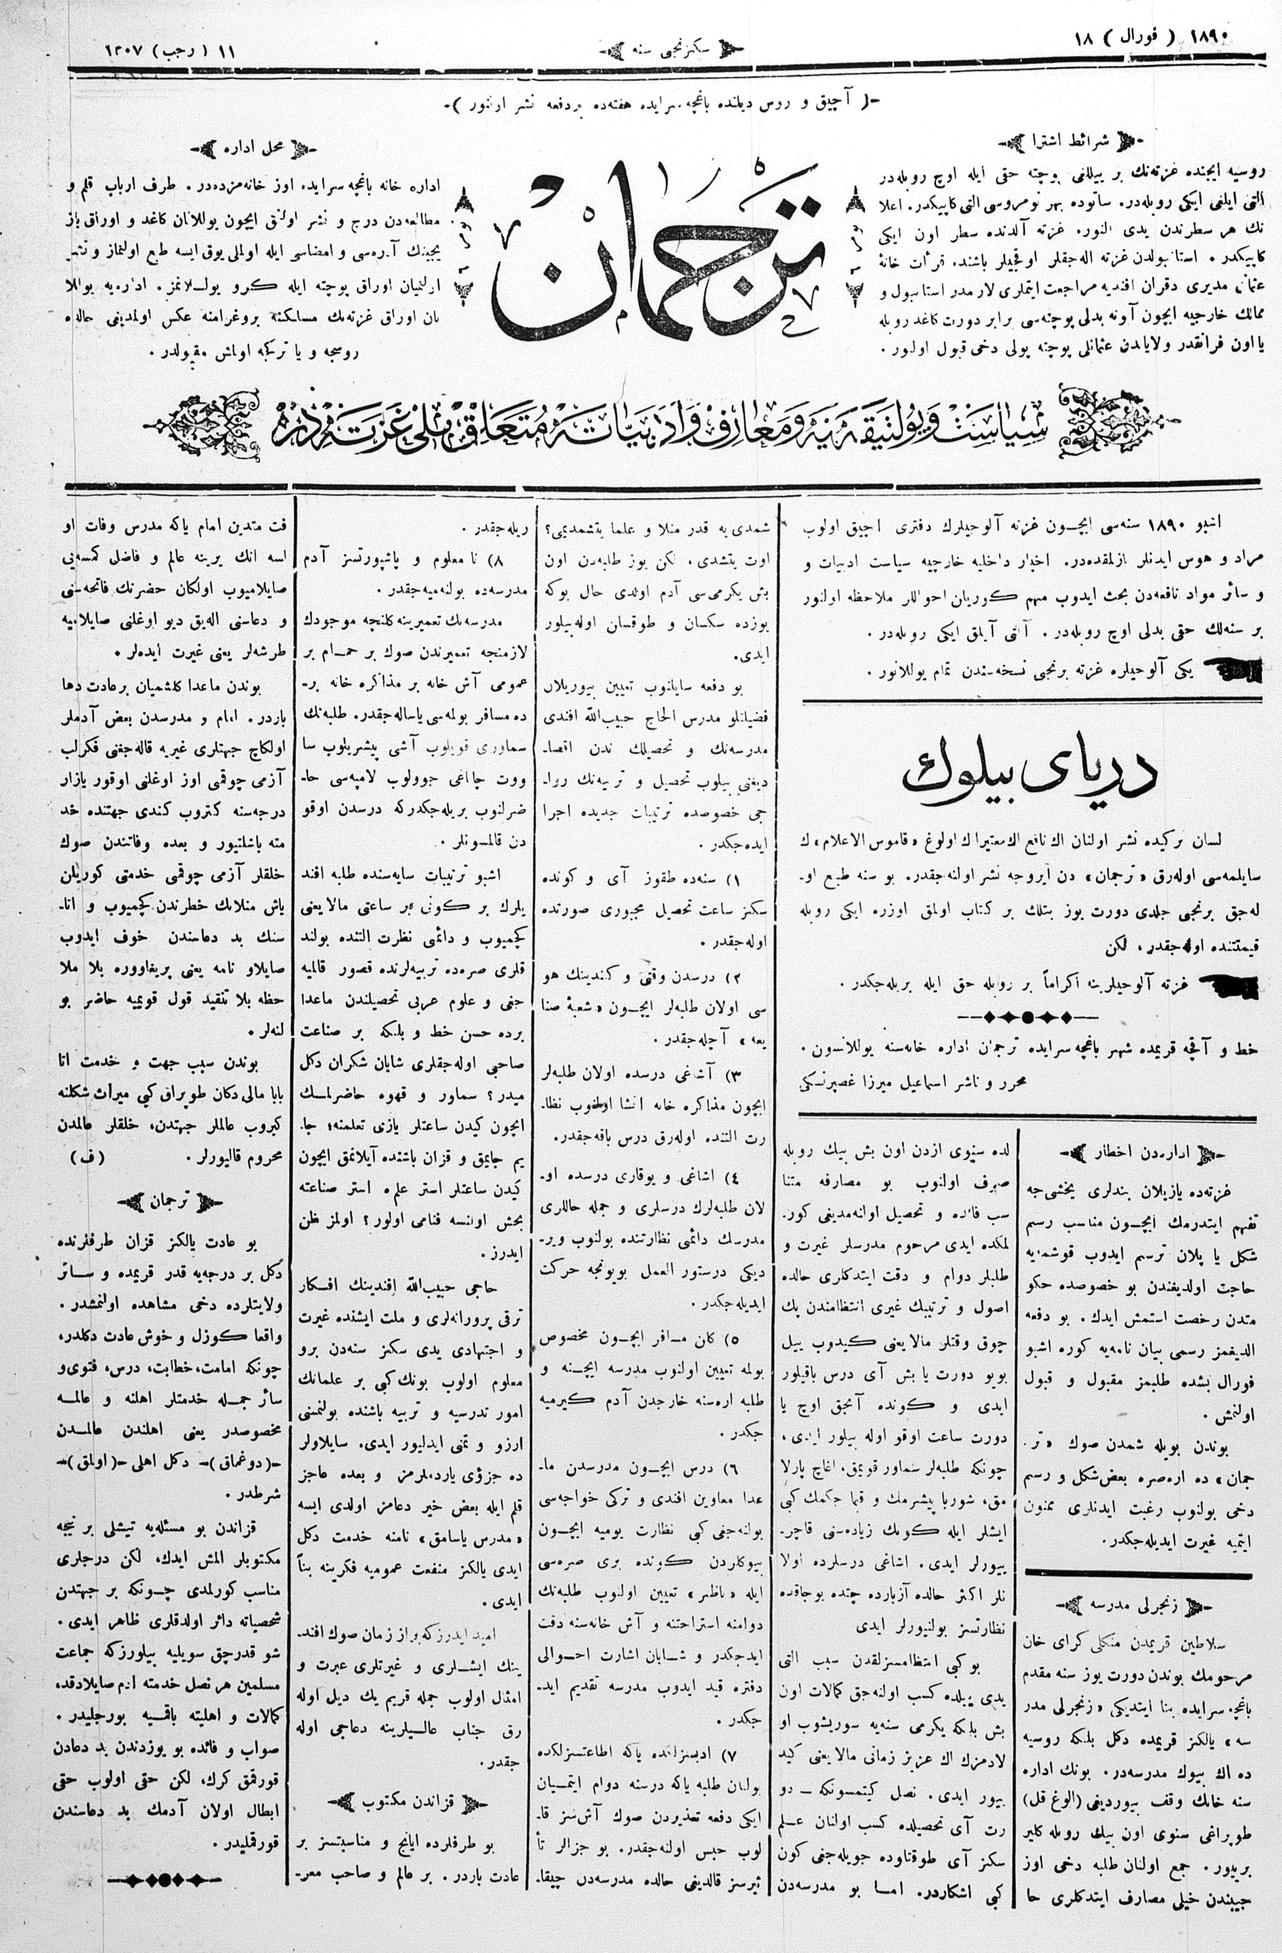 ١٨٩٠ ( فورال ) ١٨
سكزنجی سنه
١١ ( رجب ) ١٣٠٧
آچیق و روس دیلنده باغچه سرایده هفته‌ده بردفعه نشر اولنور
شرائط اشترا
روسیه ایچنده غزته‌نك بر ییللغی پوچته حقی ایله اوچ روبله‌در
التی ایلغی ایكی روبله‌در. ساتوده بهر نومروسی التی كاپیكدر. اعلا
نك هر سطرندن یدی النور. غزته آلدنده سطر اون ایكی
ممالك خارجیه ایچون آونه بدلی پوچته‌سی برابر دورت كاغد روبله
یا اون فرانقدر ولایاتدن عثمانلی پوچته پولی دخی قبول اولنور.
ترجمان
محل اداره
اداره خانه باغچه سرایده اوز خانه‌مزده‌در. طرف ارباب قلم و
مطالعه‌دن درج و نشر اولنق ایچون یوللانان كاغد و اوراق یاز
یجینك آدره‌سی و امضاسی ایله اولملی یوق ایسه طبع اولنماز و نشر
اولنمیان اوراق پوچته ایله كرو یوللانمز. اداره‌یه یوللا
نان اوراق غزته‌نك مسلكنه پروغرامنه عكس اولمدیغی حالده
روسچه و یا تركچه اولماسی مقبولدر.
سیاست و پولتیقه‌یه و معارف و ادبیاته متعلق ملی غزته‌در
اشبو ١٨٩٠ سنه‌سی ایچون غزته آلوجیلرك دفتری آچیق اولوب
مراد و هوس ایدنلر یازلمقده‌در. اخبار داخلیه خارجیه سیاست ادبیات و
و سائر مواد نافعه‌دن بحث ایدوب مهم كوریلان احوالار ملاحظه اولنور
بر سنه‌لك حقی بدلی اوچ روبله‌در. آلتی آیلق ایكی روبله‌در.
یكی آلوجیلره غزته برنجی نسخه‌سندن تمام یوللانور.
دریای بیلوك
لسان تركیده نشر اولنان اك نافع اك معتبر اك اولوغ «قاموس الاعلام» ك
سایلمه‌سی اوله‌رق «ترجمان» دن آیروجه نشر اولنه‌جقدر. بو سنه طبع او-
له‌جق برنجی جلدی دورت یوز بتلك بر كتاب اولمق اوزره ایكی روبله
قیمتنده اوله‌جقدر، لكن
غزته آلوجیلرینه اكراماً بر روبله حق ایله بریله‌جكدر.
خط و آقچه قریمده شهر باغچه سرایده ترجمان اداره خانه‌سنه یوللانسون.
محرر و ناشر اسماعیل میرزا غصپرنسكی
اداره‌دن اخطار
غزته‌ده یازیلان بندلری یخشی‌جه
تفهم ایتدرمك ایچون مناسب رسم
شكل یا پلان ترسم ایدوب قوشمه‌یه
حاجت اولدیغندن بو خصوصده حكو
متدن رخصت استمش ایدك. بو دفعه
الدیغمز رسمی بیان نامه‌یه كوره اشبو
فورال بشده طلبمز مقبول و قبول
اولنمش.
بوندن بویله شمدن صوك «تر-
جمان» ده اره‌صره بعض شكل و رسم
دخی بولنوب رغبت ایدنلری ممنون
ایتمیه غیرت ایدیله‌جكدر.
زنجرلی مدرسه
سلاطین قریمدن منكلی كرای خان
مرحومك بوندن دورت یوز سنه مقدم
باغچه سرایده بنا ایتدیكی «زنجرلی مدر
سه» یالكز قریمده دكل بلكه روسیه
ده اك بیوك مدرسه‌در. بونك اداره
سنه خانك وقف بیوردیغی (الوغ قل)
طوپراغی سنوی اون بیك روبله كلیر
بریور. جمع اولنان طلبه دخی اوز
جیبندن خیلی مصارف ایتدكلری حا
لده سنوی ازدن اون بش بیك روبله
صرف اولنوب بو مصارفه متنا
سب فائده و تحصیل اولنه‌مدیغی كور-
لمكده ایدی مرحوم مدرسلر غیرت و
طلبلر دوام و دقت ایتدكلری حالده
اصول و ترتیبك غیری انتظامندن پك
چوق وقتلر مالایعنی كیدوب ییل
بویو دورت یا بش آی درس باقیلور
ایدی و كونده آنجق اوچ یا
دورت ساعت اوقو اوله بیلور ایدی،
چونكه طلبه‌لر سماور قویمق، اغاچ یارلا
مق، شوربا پیشرمك و قیما چكمك كبی
ایشلر ایله كونك زیاده‌سنی قاچر-
ییورلر ایدی. اشاغی درسلرده اولا
نلر اكثر حالده آزبارده چتده بوجاقده
نظارتسز بولنیورلر ایدی
بو كبی انتظامسزلقدن سبب التی
یدی ییلده كسب اولنه‌جق كمالات اون
بش بلكه یكرمی سنه‌یه سوریشوب او
لادمزك اك عزیز زمانی مالایعنی كید
ییور ایدی. نصل كیتمسونكه – دو
رت آی تحصیلده كسب اولنان علم
سكز آی طوقتاوده جویله‌جغی كون
كبی اشكاردر. اما بو مدرسه‌دن
شمدی یه قدر منلا و علما یتشمدیمی؟
اوت یتشدی. لكن یوز طلبه‌دن اون
بش یكرمی‌سی آدم اولدی حال بوكه
یوزده سكسان و طوقسان اوله‌بیلور
ایدی.
بو دفعه سایلنوب تعیین بیوریلان
فضیلتلو مدرس الحاج حبیب‌الله افندی
مدرسه‌نك و تحصیلك ندن اقصا-
دیغنی بیلوب تحصیل و تربیه‌نك روا-
جی خصوصده ترتیبات جدیده اجرا
ایده‌جكدر.
١) سنه‌ده طقوز آی و كونده
سكز ساعت تحصیل مجبوری صورتده
اوله‌جقدر.
٢) درسدن وقتی و كندینك هو
سی اولان طلبه‌لر ایچون «شعبهٔ صنا
یعه» آچله‌جقدر.
٣) آشاغی درسده اولان طلبه‌لر
ایچون مذاكره خانه انشا اولنوب نظا-
رت التنده اوله‌رق درس باقه‌جقدر.
٤) اشاغی و یوقاری درسده او-
لان طلبه‌لرك درسلری و جمله حاللری
مدرسك دائمی نظارتنده بولنوب ویر-
دیكی درستور العمل بویونجه حركت
ایدیله‌جكدر.
٥) كلان مسافر ایچون مخصوص
بولمه تعیین اولنوب مدرسه ایچنه و
طلبه اره‌سنه خارجدن آدم كیرمیه
جكدر.
٦) درس ایچون مدرسدن ما-
عدا معاوین افندی و تركی خواجه‌سی
بولنه‌جغی كبی نظارت یومیه ایچون
بیوكلردن كونده بری صره‌سی
ایله «ناظر» تعیین اولنوب طلبه‌نك
دوامنه استراحتنه و آش خانه‌سنه دقت
ایدجكدر و شایان اشارت احوالی
دفتره قید ایدوب مدرسه تقدیم اید-
جكدر.
٧) ادبسزلكده یاكه اطاعتسزلكده
بولنان طلبه یاكه درسنه دوام ایتمیان
ایكی دفعه تعذیردن صوك آش‌سز قا-
لوب حبس اولنه‌جقدر. بو جزالر تأ
ثیرسز قالدیغی حالده مدرسه‌دن چیقا-
ریله‌جقدر.
٨) نا معلوم و پاشپورتسز آدم
مدرسه‌ده بولنه‌میه‌جقدر.
مدرسه‌نك تعمیرینه كلنجه موجودك
لازمنجه تعمیرندن صوك بر حمام بر
عمومی آش خانه بر مذاكره خانه بر-
ده مسافر بولمه‌سی یاساله‌جقدر. طلبه‌نك
سماوری قویلوب آشی پیشریلوب سا
ووت چاناغی جوولوب لامپه‌سی حا-
ضرلنوب بریله‌جكدركه درسدن اوقو
دن قالمسونلر.
اشبو ترتیبات سایه‌سنده طلبه افند
یلرك بر كونی بر ساعتی مالایعنی
كچمیوب و دائمی نظرت التنده بولند
قلری صره‌ده تربیه‌لرنده قصور قالمیه
جغی و علوم عربی تحصیلندن ماعدا
برده حسن خط و بلكه بر صناعت
صاحبی اوله‌جقلری شایان شكران دكل
میدر؟ سماور و قهوه حاضرلمك
ایچون كیدن ساعتلر یازی تعلمنه؛ چا-
یم چایمق و قزان باشنده آیلانمق ایچون
كیدن ساعتلر استر علمه استر صناعته
بخش اولنسه فنامی اولور؟ اولمز ظن
ایدرز.
حاجی حبیب‌الله افندینك افكار
ترقی پرورانه‌لری و ملت ایشنده غیرت
و اجتهادی یدی سكز سنه‌دن برو
معلوم اولوب بونك كبی بر علمانك
امور تدرسیه و تربیه باشنده بولنمسنی
ارزو و تمنی ایدلیور ایدی. سایلاولر
ده جزؤی یاردملرمز و بعده عاجز
قلم ایله بعض خیر دعامز اولدی ایسه
«مدرس یاسامق» نامنه خدمت دكل
ایدی یالكز منفعت عمومیه فكرینه بناً
ایدی.
امید ایدرزكه براز زمان صوك افند-
ینك ایشلری و غیرتلری عبرت و
امثال اولوب جمله قریم یك دیل اوله
رق جناب عالیلرینه دعاجی اوله
جقدر.
قزاندن مكتوب
بو طرفلرده ایانج و مناسبتسز بر
عادت باردر. بر عالم و صاحب معر-
فت متدین امام یاكه مدرس وفات او
لسه انك یرینه عالم و فاضل كمسه‌یی
صایلامیوب اولكان حضرتك فاتحه‌سنی
و دعاسنی الەیق دیو اوغلنی صایلامیه
طرشه‌لر یعنی غیرت ایده‌لر.
بوندن ماعدا كلشمیان برعادت دها
باردر. امام و مدرسدن بعض آدملر
اولكاچ جهتلری غیریه قاله‌جغنی فكرلب
آزمی چوقمی اوز اوغلنی اوقور یازار
درجه‌سنه كتروب كندی جهتنده خد
مته باشلتیور و بعده وفاتندن صوك
خلقلر آزمی چوقمی خدمتی كوریلان
یاش منلانك خطرندن كچمیوب و اتا-
سنك بد دعاسندن خوف ایدوب
صایلاو نامه یعنی پریغاووره بلا ملا
حظه بلا تنقید قول قویمیه حاضر بو
لنه‌لر.
بوندن سبب جهت و خدمت اتا
بابا مالی دكان طوپراق كبی میراث شكلنه
كیروب عالملر جهتدن، خلقلر عالمدن
محروم قالیورلر. (ف)
ترجمان
بو عادت یالكز قزان طرفلرنده
دكل بر درجه‌یه قدر قریمده و سائر
ولایتلرده دخی مشاهده اولنمشدر.
واقعا كوزل و خوش عادت دكلدر،
چونكه امامت، خطابت، درس، فتوی و
سائر جمله خدمتلر اهلنه و عالمه
مخصوصدر یعنی اهلندن عالمدن
-(دوغماق)- دكل اهلی -(اولمق)-
شرطدر.
قزاندن بو مسئله‌یه تیشلی بر نیجه
مكتوبلر المش ایدك، لكن درجلری
مناسب كورلمدی چونكه بر جهتدن
شخصیاته دائر اولدقلری ظاهر ایدی.
شو قدرجق سویلیه بیلورزكه جماعت
مسلمین هر نصل خدمته ادم صایلادقده،
كمالات و اهلیته باقمیه بورجلیدر.
صواب و فائده بو یوزدندن بد دعادن
قورقمق كرك، لكن حقی اولوب حقی
ابطال اولان آدمك بد دعاسندن
قورقملیدر.